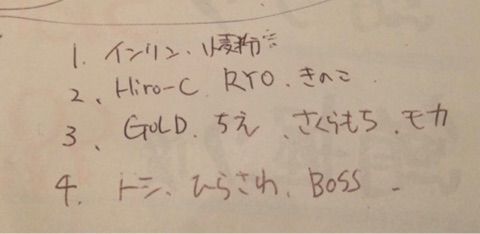 1. インリン、小麦粉
2、Hiro-C RYO、きのこ
3、GOLD、ちえ、さくらもち、モカ
4. トシ、ひらさわ、BOSS